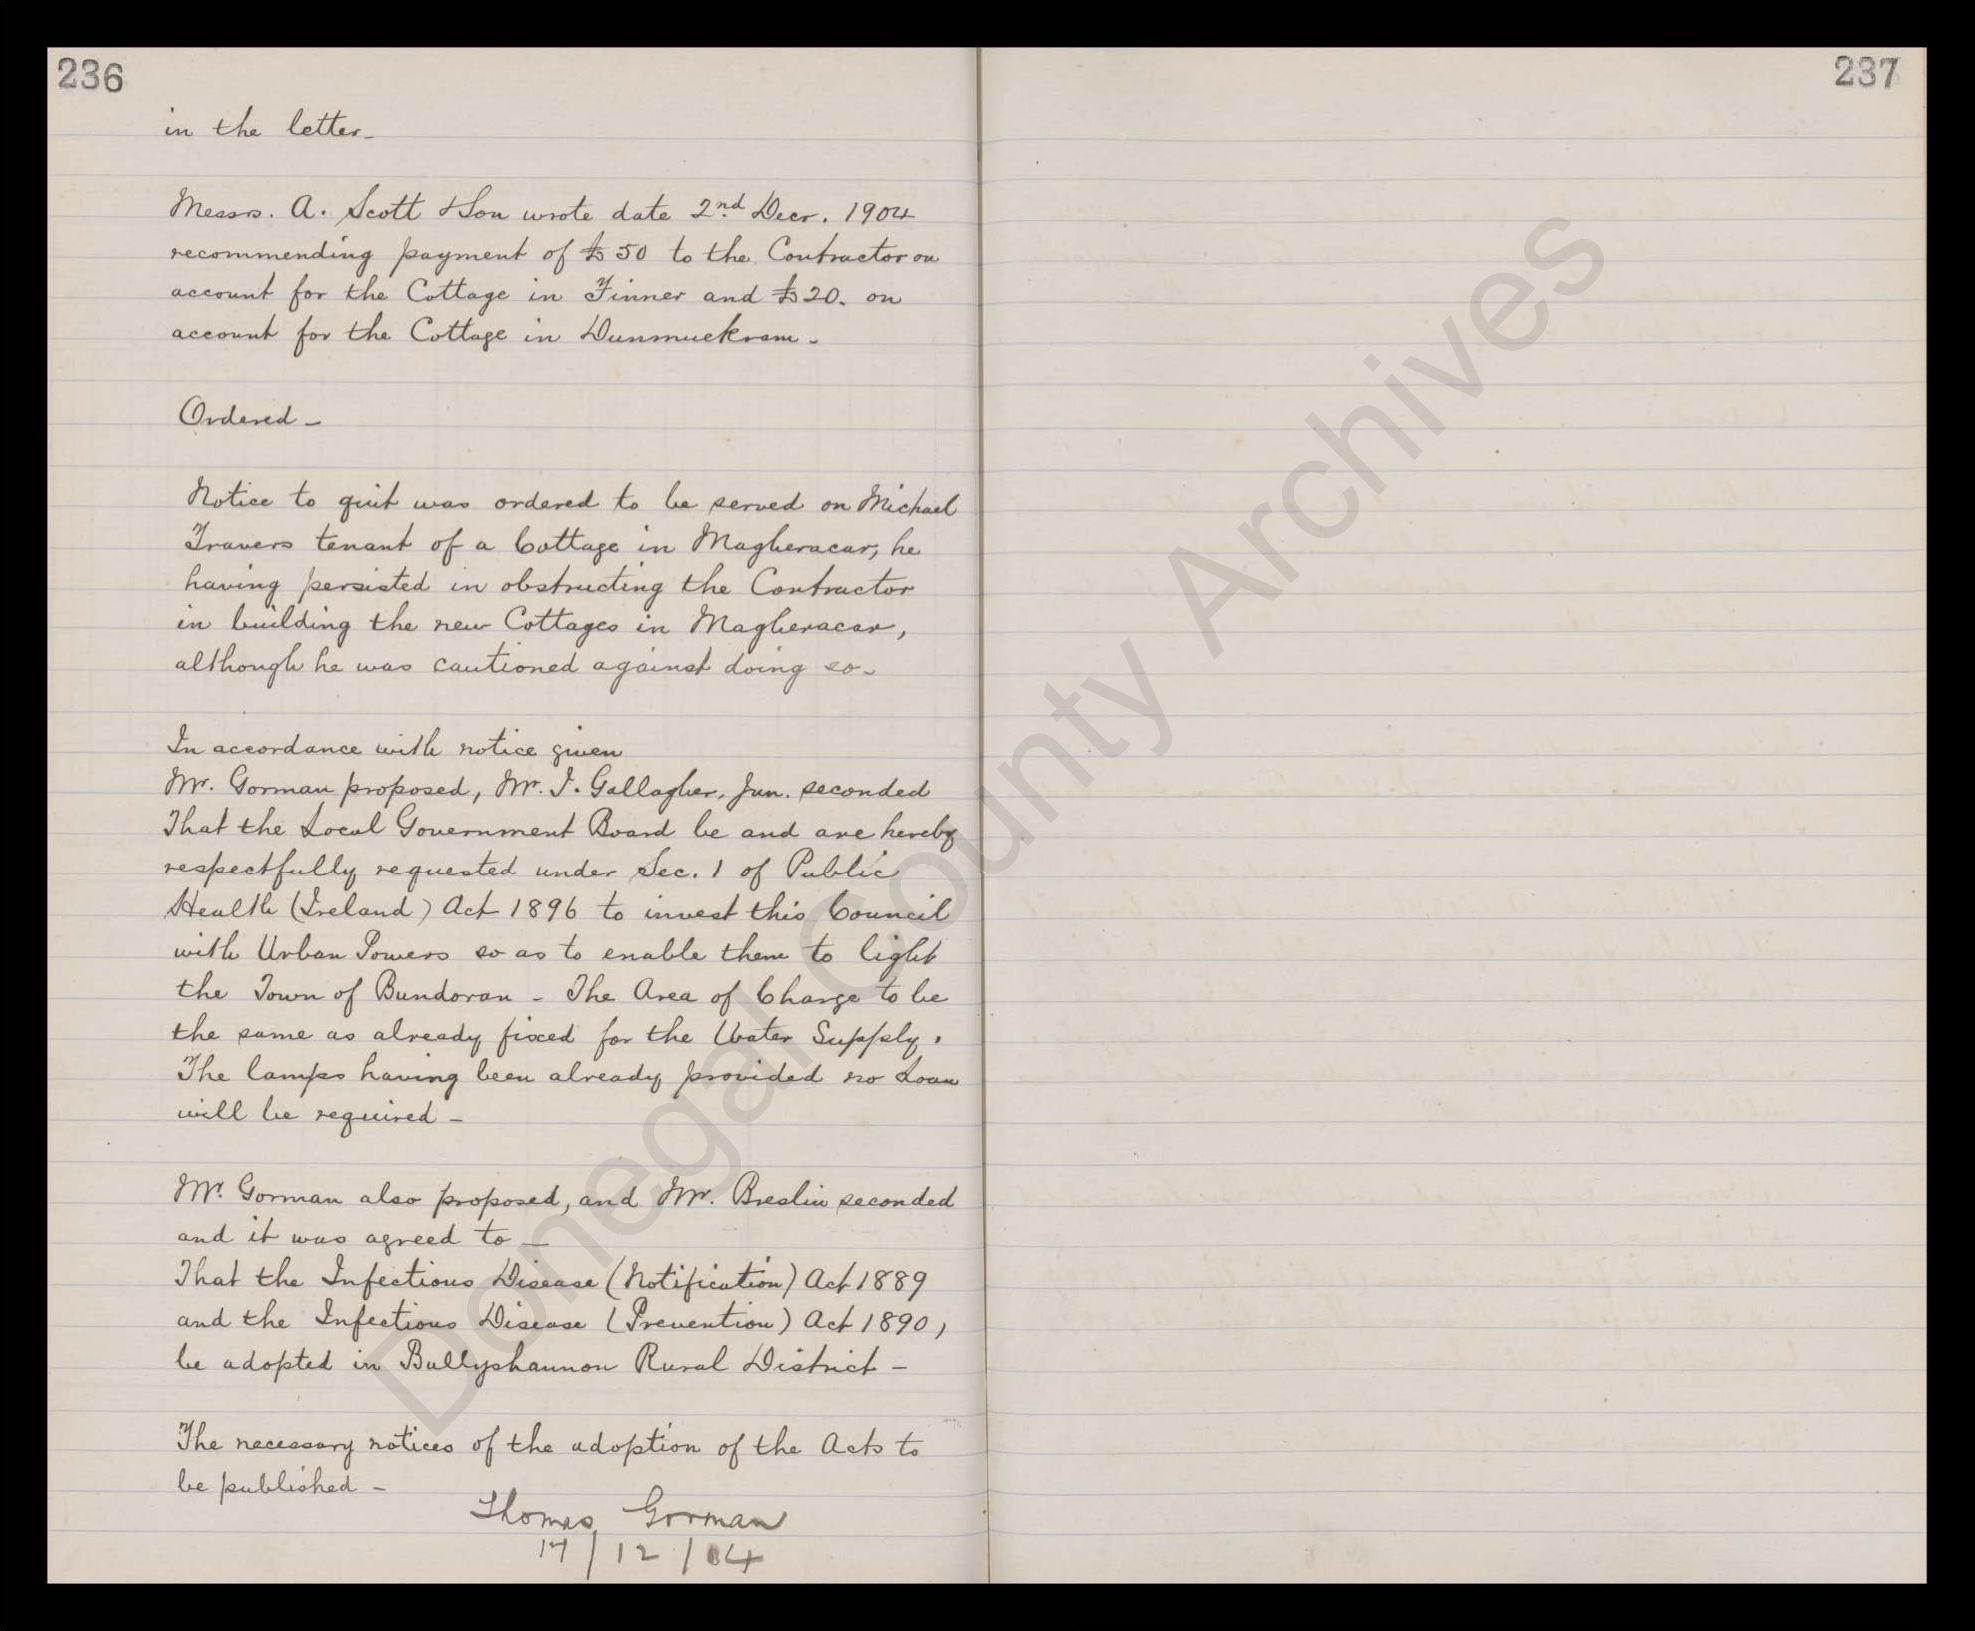 236
in the letter_
Messrs. A. Scott & Son wrote date 2nd Decr. 1904
recommending payment of £50 to the Contractor on
account for the Cottage in Finner and £20. on
account for the Cottage in Dunmuckram -
Ordered -
Notice to quit was ordered to be served on Michael
Travers tenant of a Cottage in Magheracar, he
having persisted in obstructing the Contractor
in building the new Cottages in Magheracar,
although he was cautioned against doing so -
In accordance with notice given
Mr. Gorman proposed, Mr. J. Gallagher, Jun. seconded
That the Local Government Board be and are hereby
respectfully requested under Sec. 1 of Public
Health (Ireland) Act 1896 to invest this Council
with Urban Powers so as to enable them to light
the Town of Bundoran - The Area of Charge to be
the same as already fixed for the Water Supply.
The lamps having been already provided no Loan
will be required -
Mr. Gorman also proposed, and Mr. Breslin seconded
and it was agreed to -
That the Infectious Disease (Notification) Act 1889
and the Infectious Disease (Prevention) Act 1890,
be adopted in Ballyshannon Rural District -
The necessary notices of the adoption of the Acts to
be published -
Thomas Gorman
17/12/04
237
Donegal County Archives